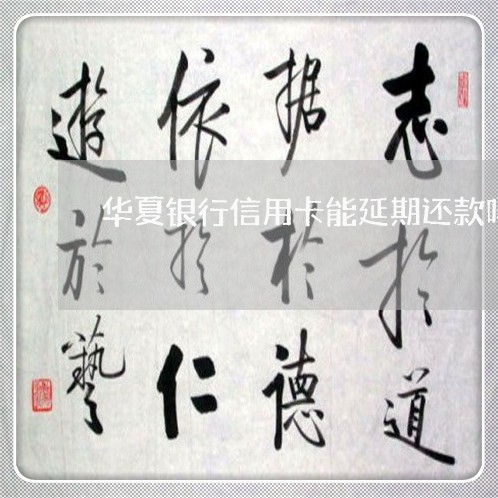 志於道
据於德
依於仁
遊於藝
华夏银行信用卡能延期还款